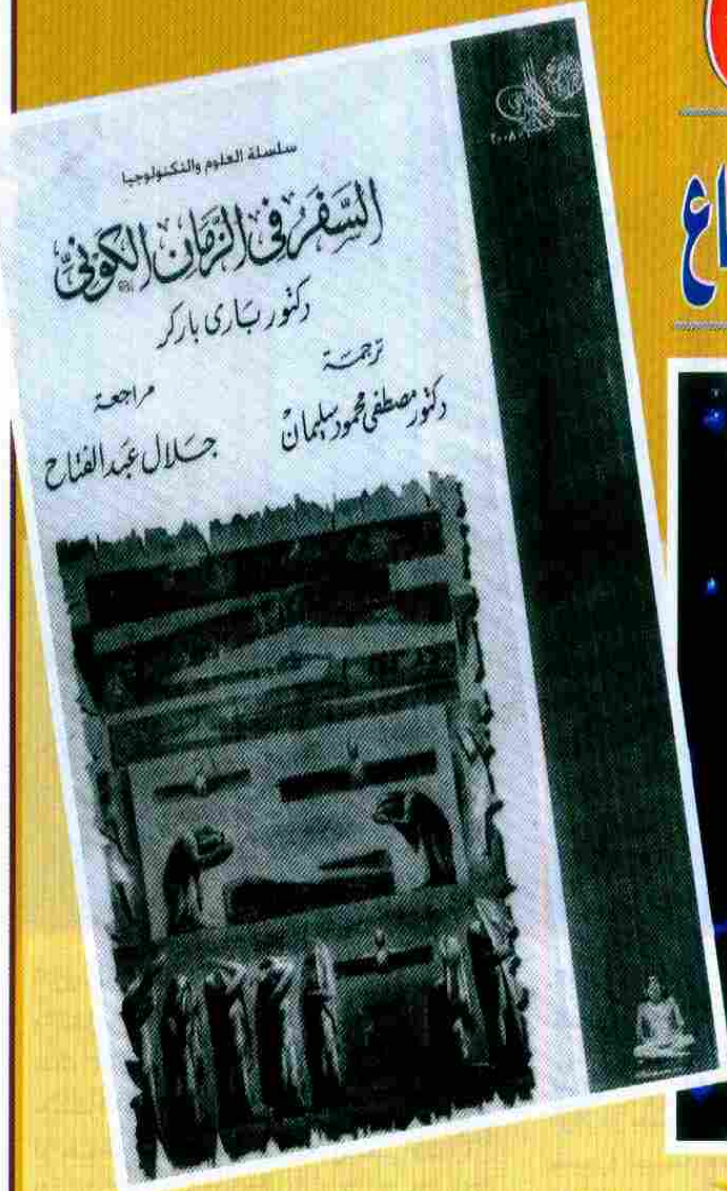 سلسلة العلوم والتكنولوجيا
السَّفَرُ فِى الزَّمَانِ الكَوْنِىِّ
دكتور بَارى باركر
ترجمَة
دكتور مصطفى محمود سليمان
مراجعة
جَلال عَبد الفتاح
٢٠٠٨
اع